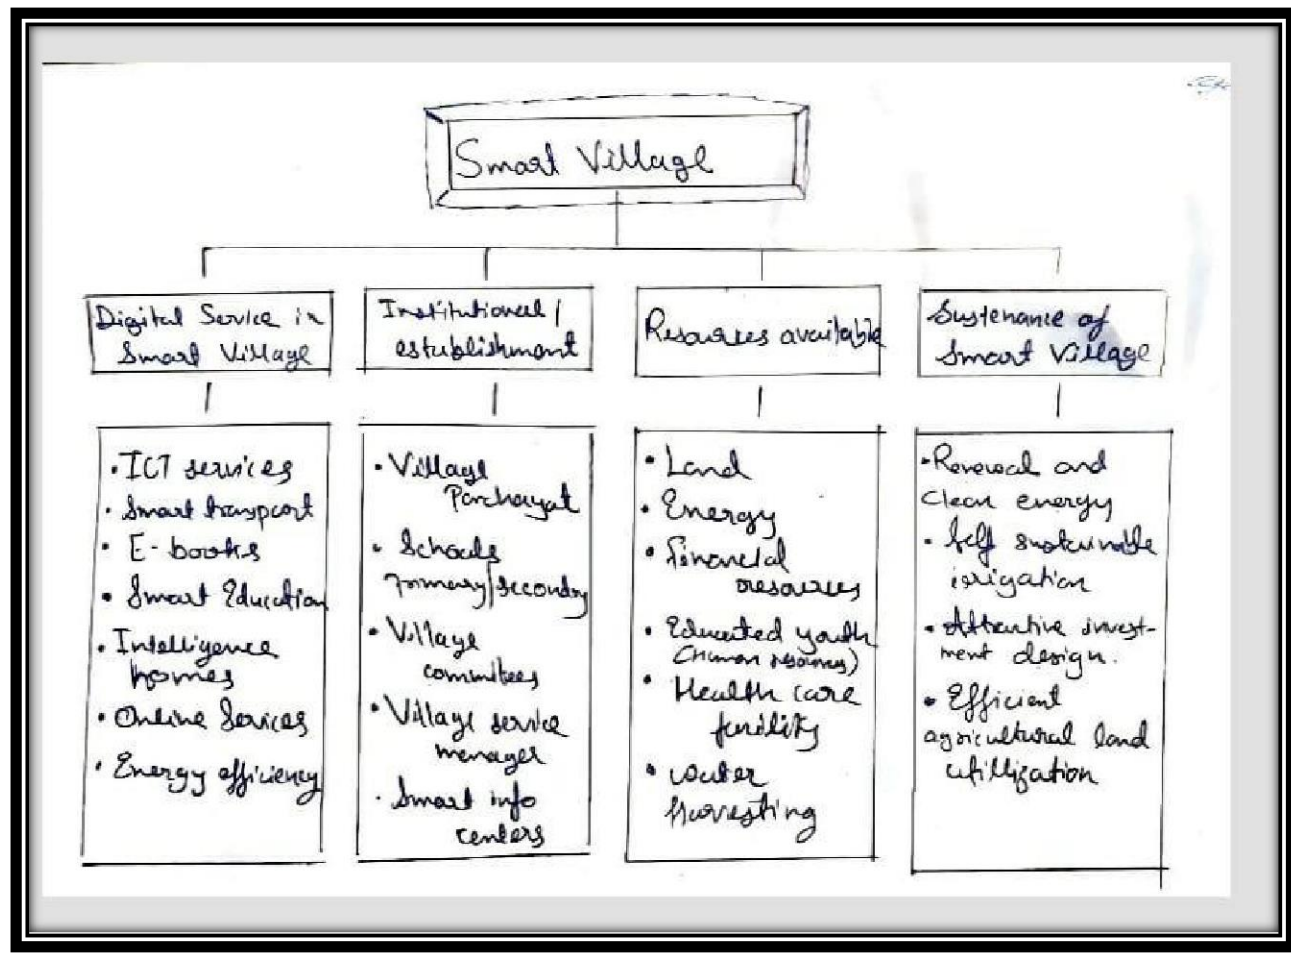 Smart Village
Digital Service in
Smart Village
Institutional /
establishment
Resources available
Sustenance of
Smart Village
• ICT services
• Smart transport
• E-books
• Smart Education
• Intelligence
homes
• Online Services
• Energy efficiency
• Village
Panchayat
• Schools
primary/secondry
• Village
committees
• Village service
manager
• Smart info
centers
• Land
• Energy
• financial
resources
• Educated youth
(Human resources)
• Health care
facility
• Water
harvesting
• Renewal and
Clean energy
• Self sustainable
irrigation
• Attractive invest-
ment design.
• Efficient
agricultural land
utillization